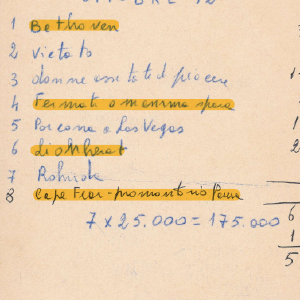 1 Bethoven
2 Vietato
3 donne assetate di piacere
4 Fermati o mamma spara
5 Porcona a Las Vegas
6 Lionheart
7
8 Cape Fear - promontorio Paura
7 x 25.000 = 175.000
1
2
6
1
5